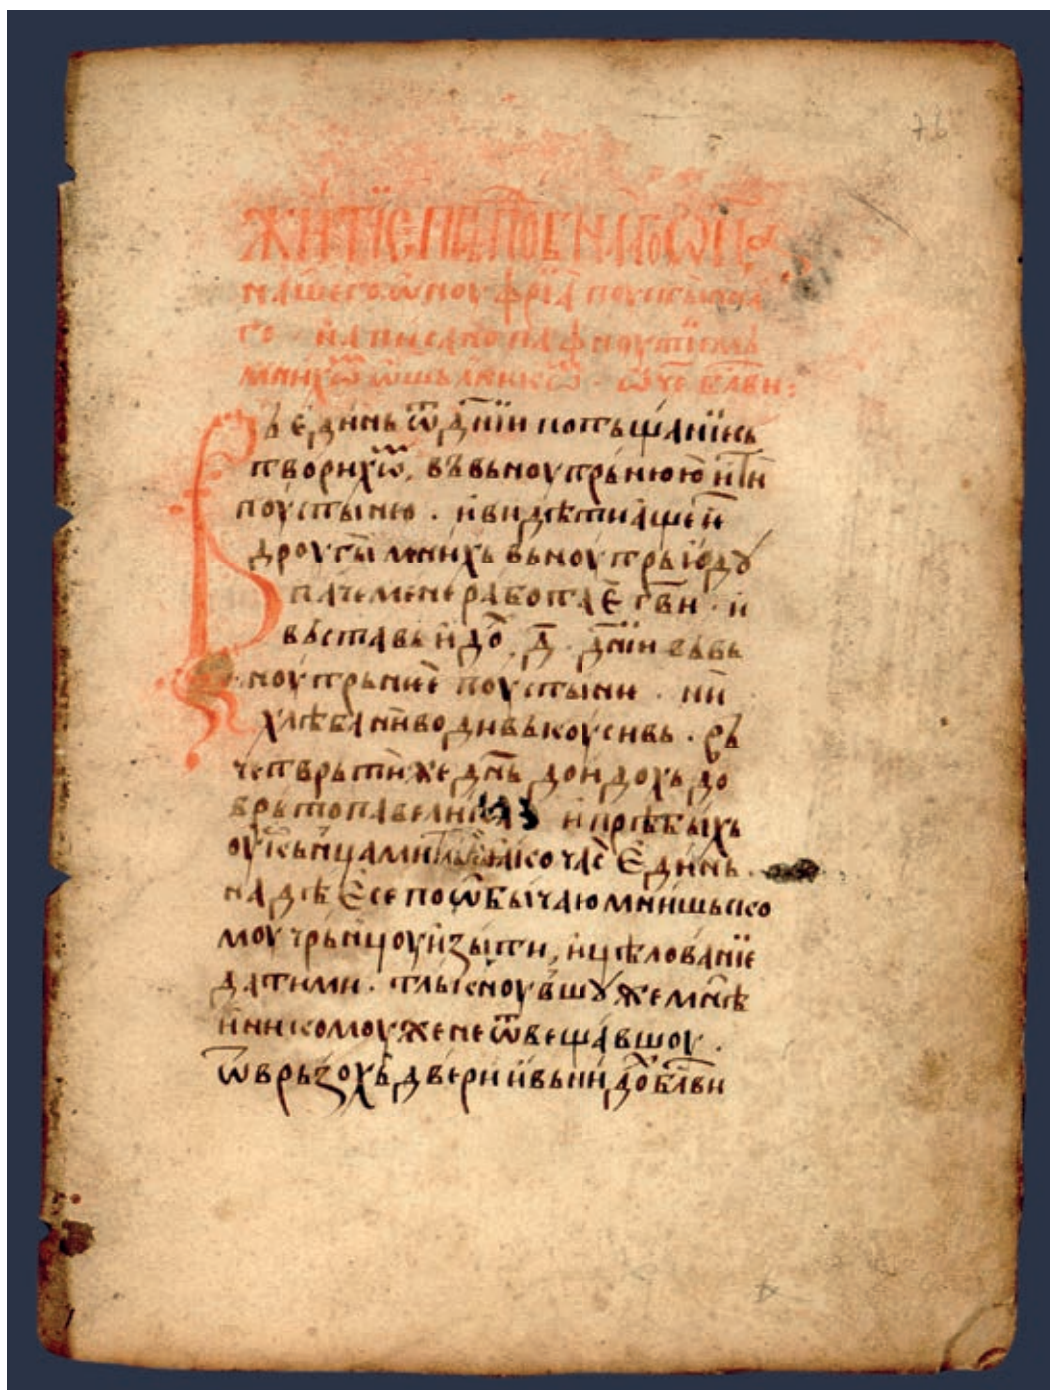 76
ЖИТІЕ ПРѢПОБНАГО ѠЦ҃А
НАШЕГО ѠНОУФРІА ПОУСТЫННА
ГО · НАПИСАНО ПАФНОУТІЕМЬ
В Ь ЕДИНЬ Ѿ ДНІИ ПОТЬЩАНІИКЬ
ТВОРИХѠ, ВЪВЬНОУТРЬНЮЮ ИТИ
ПОУСТЫНЮ . И ВИДѢТИ АЩЕ Е
ДРОУГЫ МНИХЬ ВЬНОУТРЬЮДꙊ
ПАЧЕ МЕНЕ РАБОТАЕ Г҃ВИ · И
ВЬСТАВЬ ИДО . Д҃ . ДНІИ ВЬВЬ
НОУТРЬНЕЕ ПОУСТЫНИ . НИ
ХЛѢБА НИ ВОДИ ВЬКОУСИВЬ . ВЬ
ЧЕТВРЬТИ ЖЕ ДНЬ ДОИДОХЬ ДО
ВРЬТОПА ВЕЛИКА И ПРѢБЫХЬ
ЧАС ЕДИНЬ .
НАДѢЕ СЕ ПО ѠБЫЧАЮ МНИШЬСКО
МОУ ЧРЬНЦОУ ИЗЫТИ, И ЦѢЛОВАНІЕ
ДАТИ МИ . ТЛЬКНОУВШꙊ ЖЕ МНѢ
И НИКОМОУ ЖЕ НЕ ѾВЕЩАВШОУ .
ѾВРЬЗОХЬ ДВЕРИ И ВЬНИДО БЛ҃ВИ